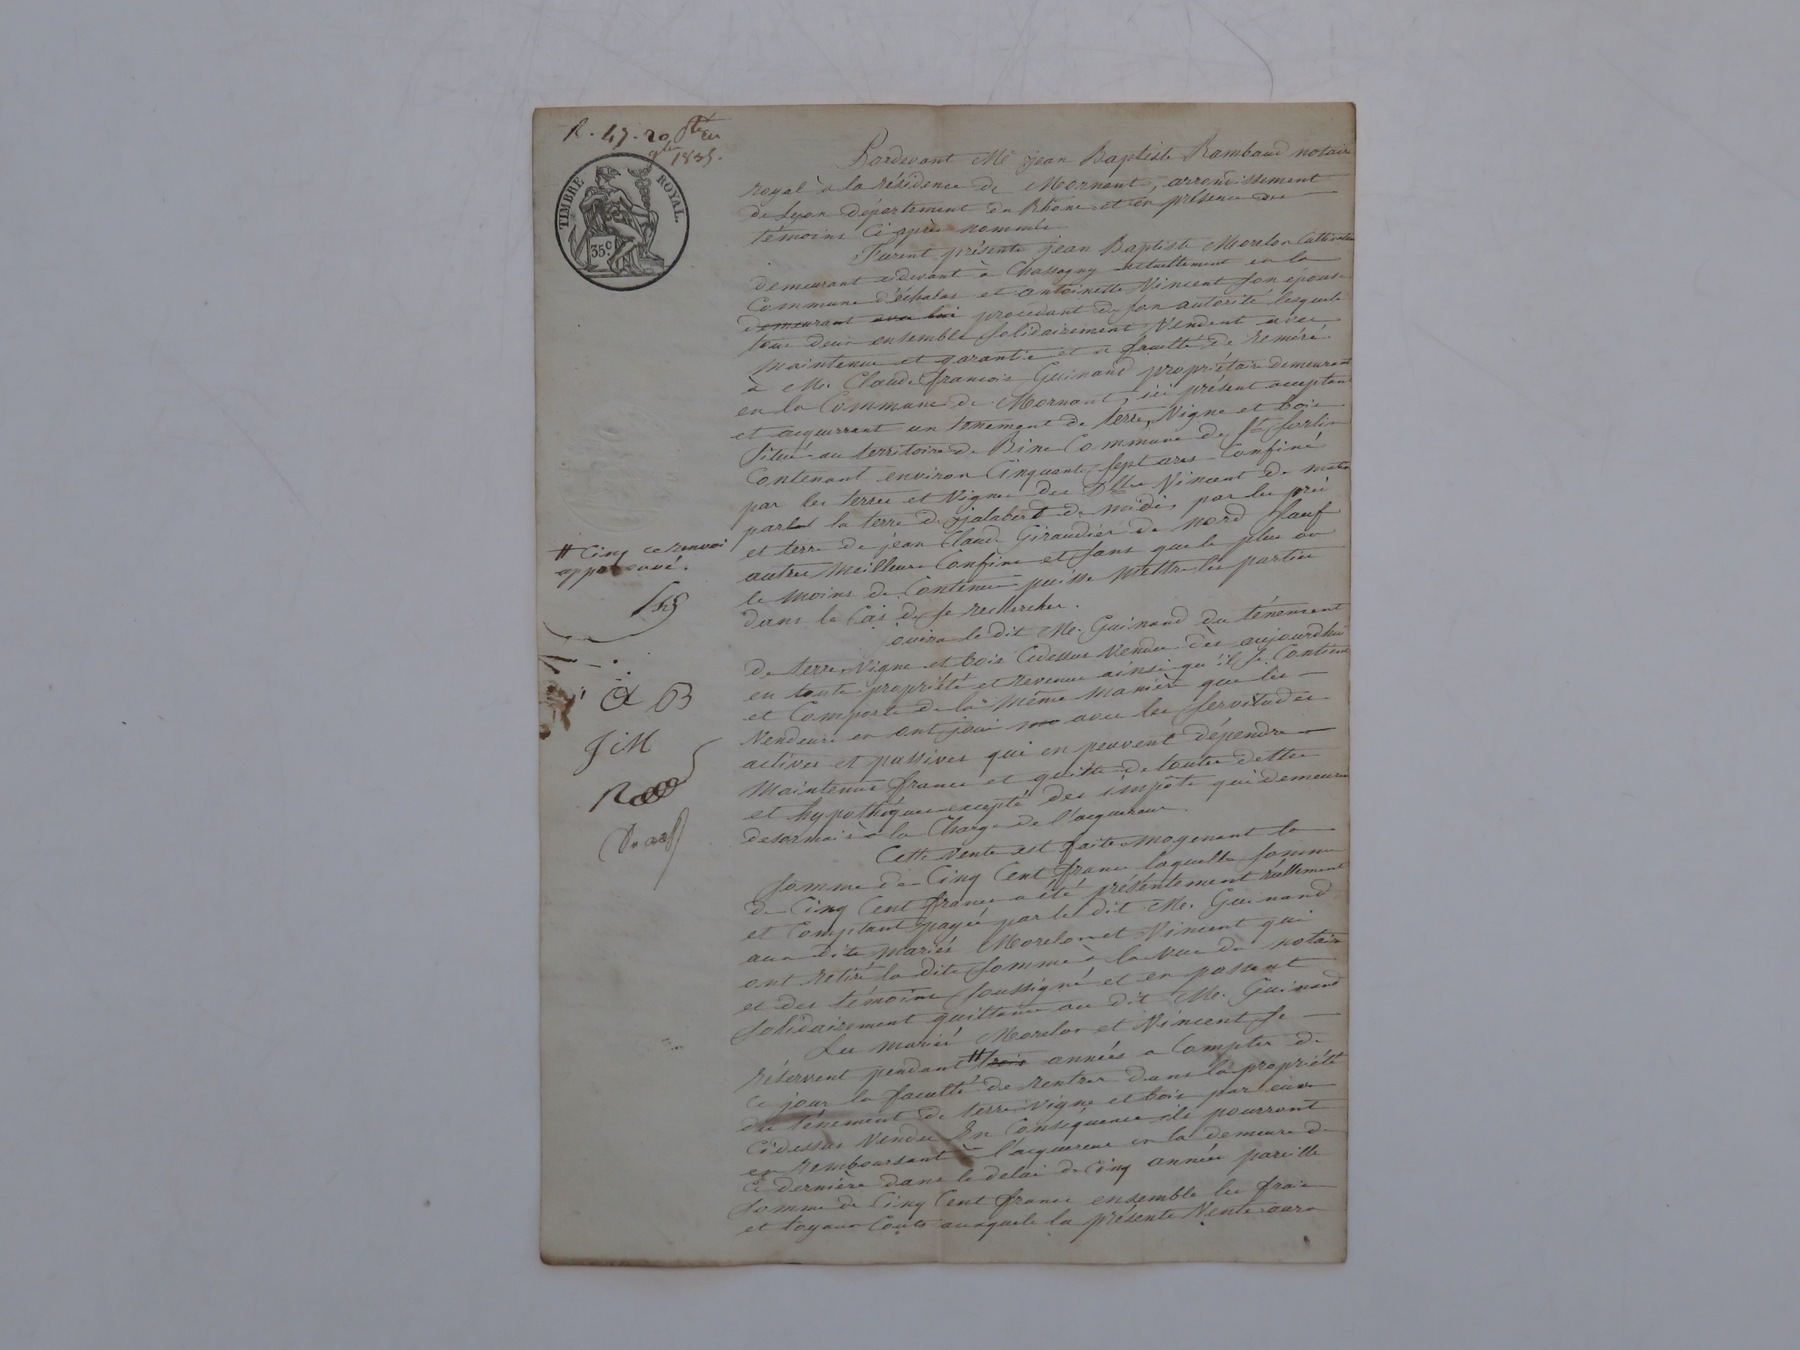 R. 47. 20
1835.
TIMBRE ROYAL.
35 c.
Pardevant Me jean Baptiste Rambaud notaire
royal à la résidence de Mornant, arrondissement
de Lyon département du Rhône et en présence des
témoins ci après nommés
Furent présents jean Baptiste Morelon Cultivateur
demeurant cidevant à Chassagny actuellement en la
Commune d'échalas et antoinette Vincent son épouse
demeurant avec lui procedant de son autorité lesquels
tous deux ensemble solidairement Vendent avec
maintenue et garantie et a faculté de reméré
à Mr. Claude françois Guinand propriétaire demeurant
en la Commune de Mornant, ici présent acceptant
et acquerrant un tenement de terre, Vigne et bois
situé au territoire de Bine Commune de St Sorlin
Contenant environ Cinquante sept ares Confiné
par les terres et Vignes des Vincent de matin
par la terre de jalabert de midi, par les pré
et terre de jean Claude Giraudier de nord sauf
autres meilleurs Confins et sans que le plus ou
le moins de Contenue puisse mettre les parties
dans le Cas de se rechercher.
# Cinq ce renvoi
approuvé.
jouira le dit Mr. Guinand du ténement
de terre, Vigne et bois Cidessus Vendu dès aujourdhui
en toute propriété et revenu ainsi qu'il se Contient
et Comporte de la même manière que les
Vendeurs en ont joui avec les servitudes
actives et passives qui en peuvent dépendre
Maintenus francs et quitte de toutes dettes
et hypothéques excepté des impôts qui demeurent
desormais à la Charge de l'acquereur.
JCM
Cette Vente est faite moyenant la
somme de Cinq Cent francs laquelle somme
de Cinq Cent francs a été présentement réellement
et Comptant payée par le dit Mr. Guinand
aux dits mariés Morelon et Vincent qui
ont retiré la dite somme à la vue du notaire
et des témoins soussignés et en passent
solidairement quittance au dit Mr. Guinand
Les mariés Morelon et Vincent se
réservent pendant # trois années a Compter de
ce jour la faculté de rentrer dans la propriété
du ténement de terre vigne et bois par eux
Cidessus Vendu En Conséquence ils pourront
en remboursant à l'acquereur en la demeure de
Ce dernier dans le délai de Cinq années pareille
somme de Cinq Cent francs ensemble les frais
et loyaux Couts auxquels la présente Vente aura